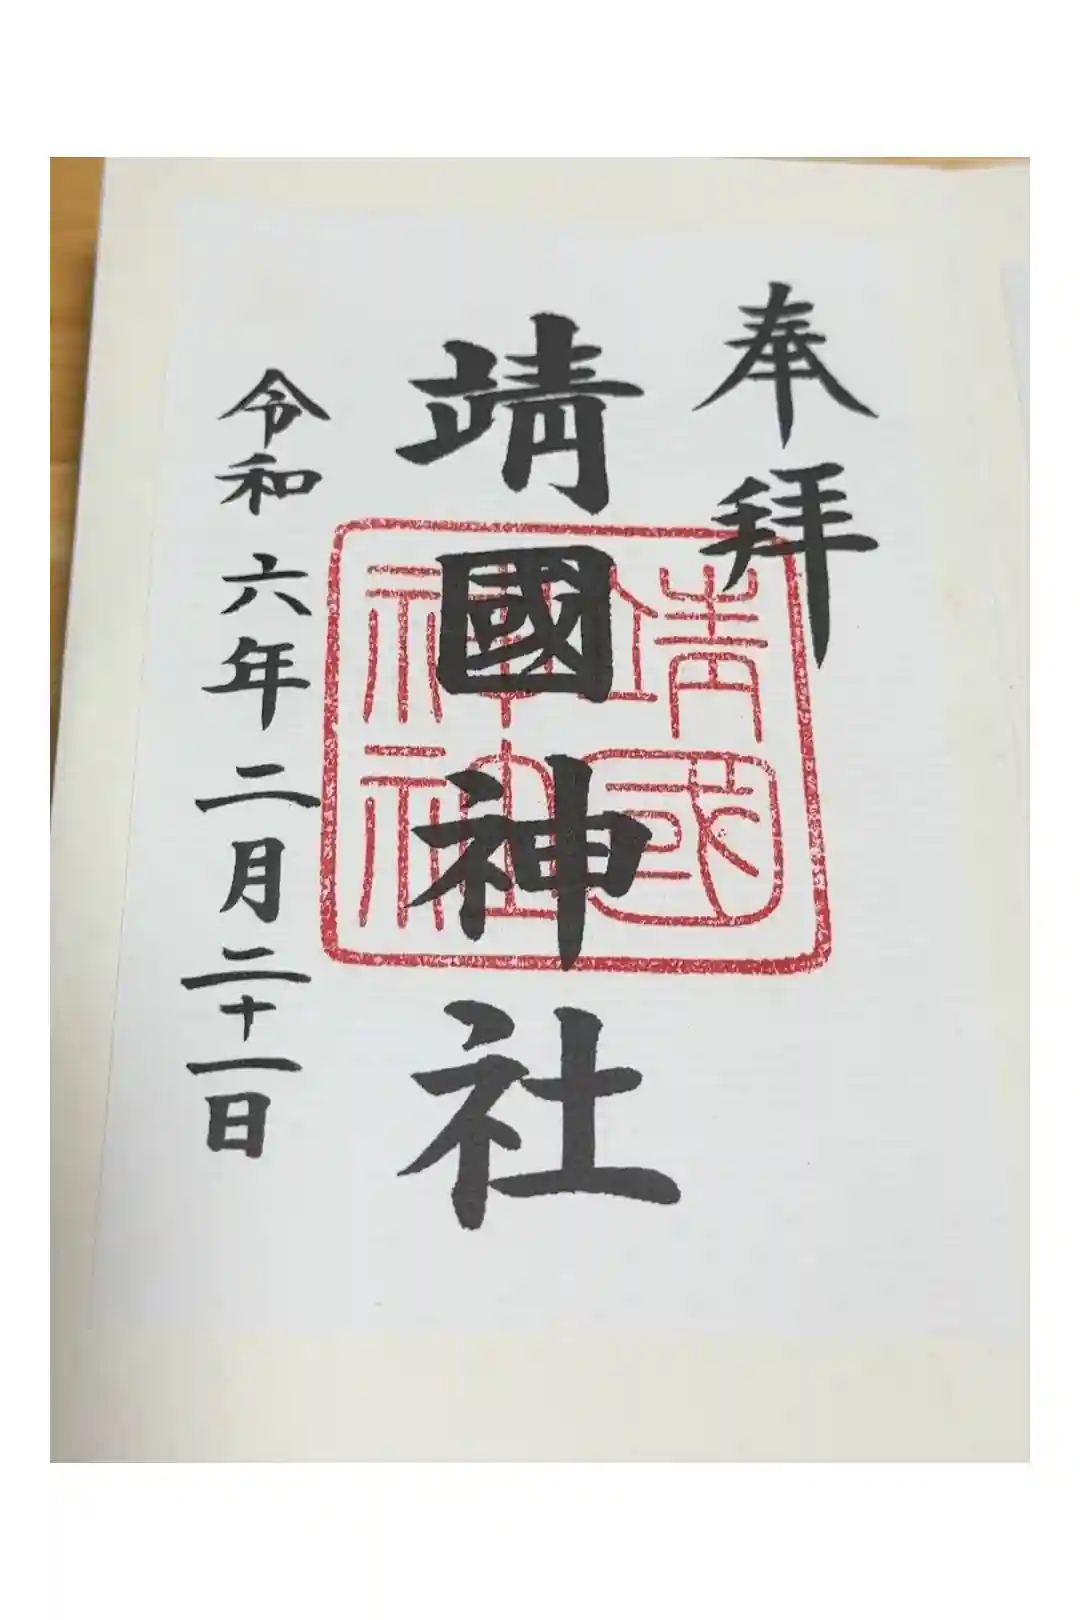 奉拝
靖國神社
靖國
神社
令和六年二月二十一日